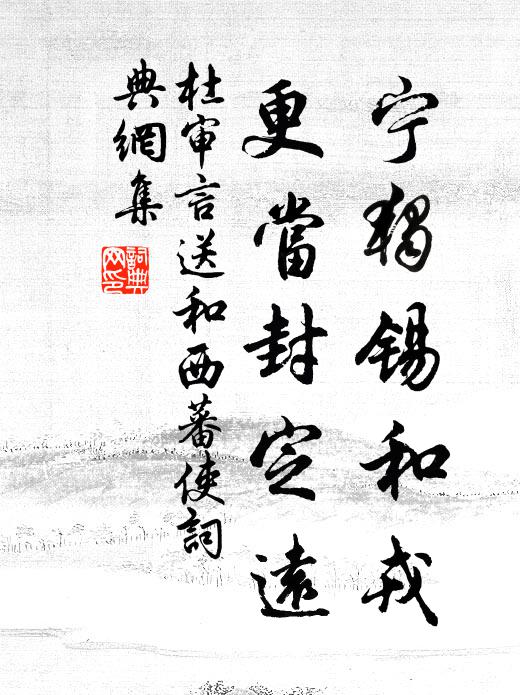 宁独锡和戎
更當封定遠
杜审言送和西蕃使詞
典網集
詞典
网印